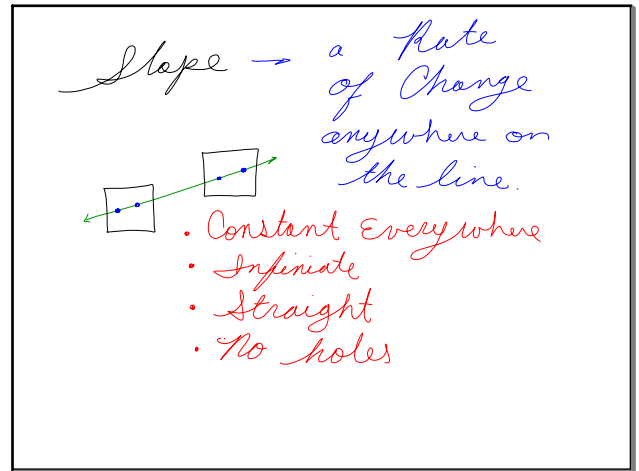 Slope → a Rate
of Change
anywhere on
the line.
• Constant Everywhere
• Infiniate
• Straight
• No holes